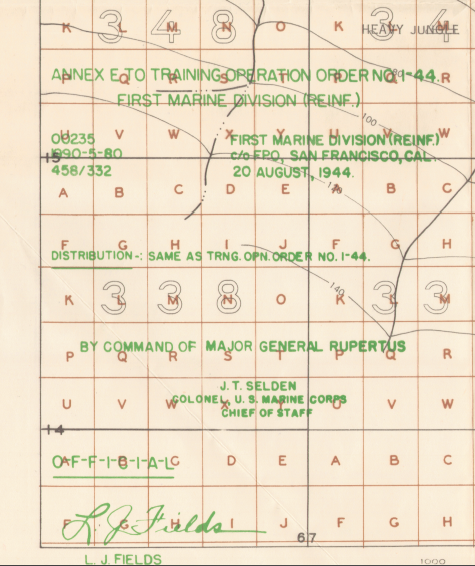 K L M N O K L M
3 4 8 3 4
HEAVY JUNGLE
ANNEX E TO TRAINING OPERATION ORDER NO. 1-44.
P Q R S T P Q R
FIRST MARINE DIVISION (REINF.)
100
U V W X Y U V W
00235 FIRST MARINE DIVISION (REINF.)
1990-5-80 c/o FPO, SAN FRANCISCO, CAL.
15
458/332 20 AUGUST, 1944.
A B C D E A B C
F G H I J F G H
DISTRIBUTION-: SAME AS TRNG. OPN. ORDER NO. 1-44.
140
K L M N O K L M
3 3 8 3 3
BY COMMAND OF MAJOR GENERAL RUPERTUS
P Q R S T P Q R
J. T. SELDEN
COLONEL, U. S. MARINE CORPS
U V W X Y U V W
CHIEF OF STAFF
14
O-F-F-I-C-I-A-L
A B C D E A B C
L. J. Fields
F G H I J F G H
67
L. J. FIELDS
1000